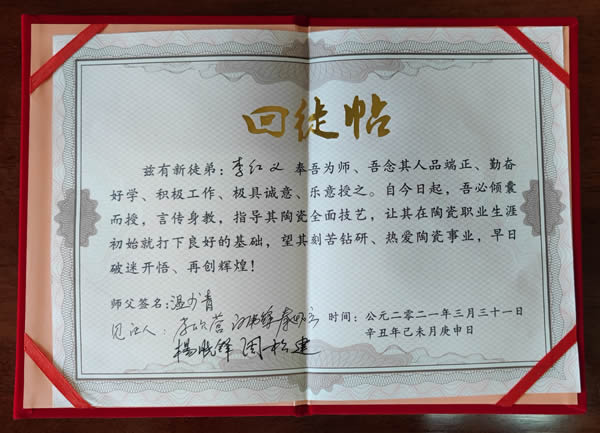 回徒帖
兹有新徒弟：李红义 奉吾为师、吾念其人品端正、勤奋
好学、积极工作、极具诚意、乐意授之。自今日起，吾必倾囊
而授，言传身教，指导其陶瓷全面技艺，让其在陶瓷职业生涯
初始就打下良好的基础，望其刻苦钻研、热爱陶瓷事业，早日
破迷开悟、再创辉煌！
师父签名：温书青
见证人：李欣营
杨晓锋 周松建
时间：公元二零二一年三月三十一日
辛丑年己未月庚申日